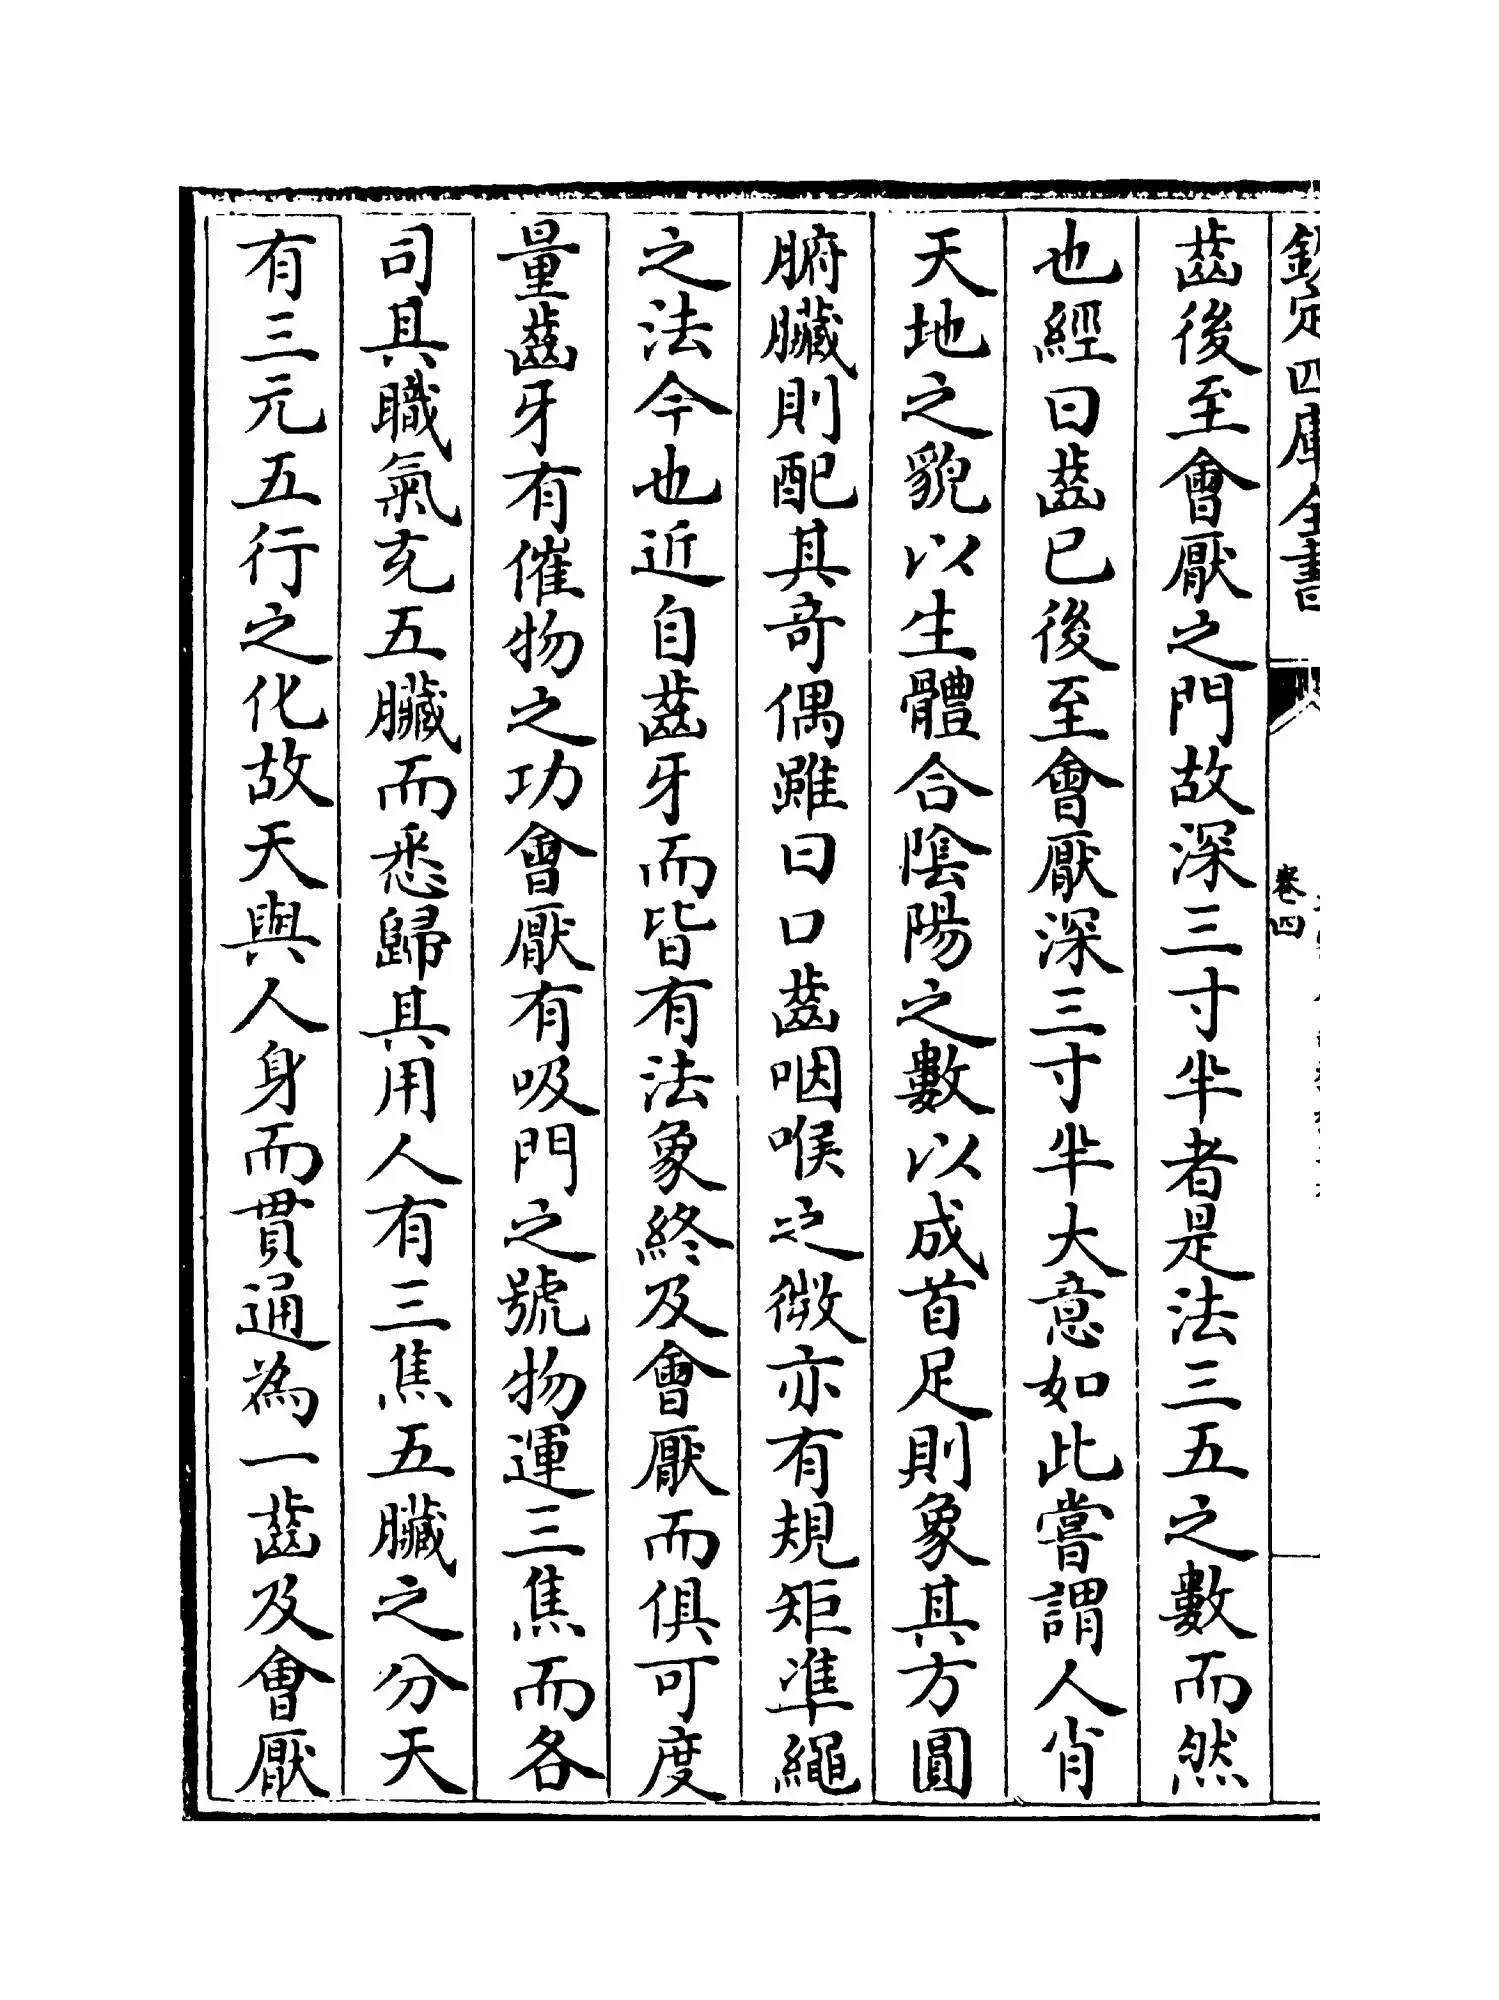 欽定四庫全書
卷四
齒後至會厭之門故深三寸半者是法三五之數而然
也經曰齒已後至會厭深三寸半大意如此嘗謂人肖
天地之貌以生體合陰陽之數以成首足則象其方圓
腑臟則配其奇偶雖曰口齒咽喉之微亦有規矩準繩
之法今也近自齒牙而皆有法象終及會厭而俱可度
量齒牙有催物之功會厭有吸門之號物運三焦而各
司其職氣充五臟而悉歸其用人有三焦五臟之分天
有三元五行之化故天與人身而貫通為一齒及會厭